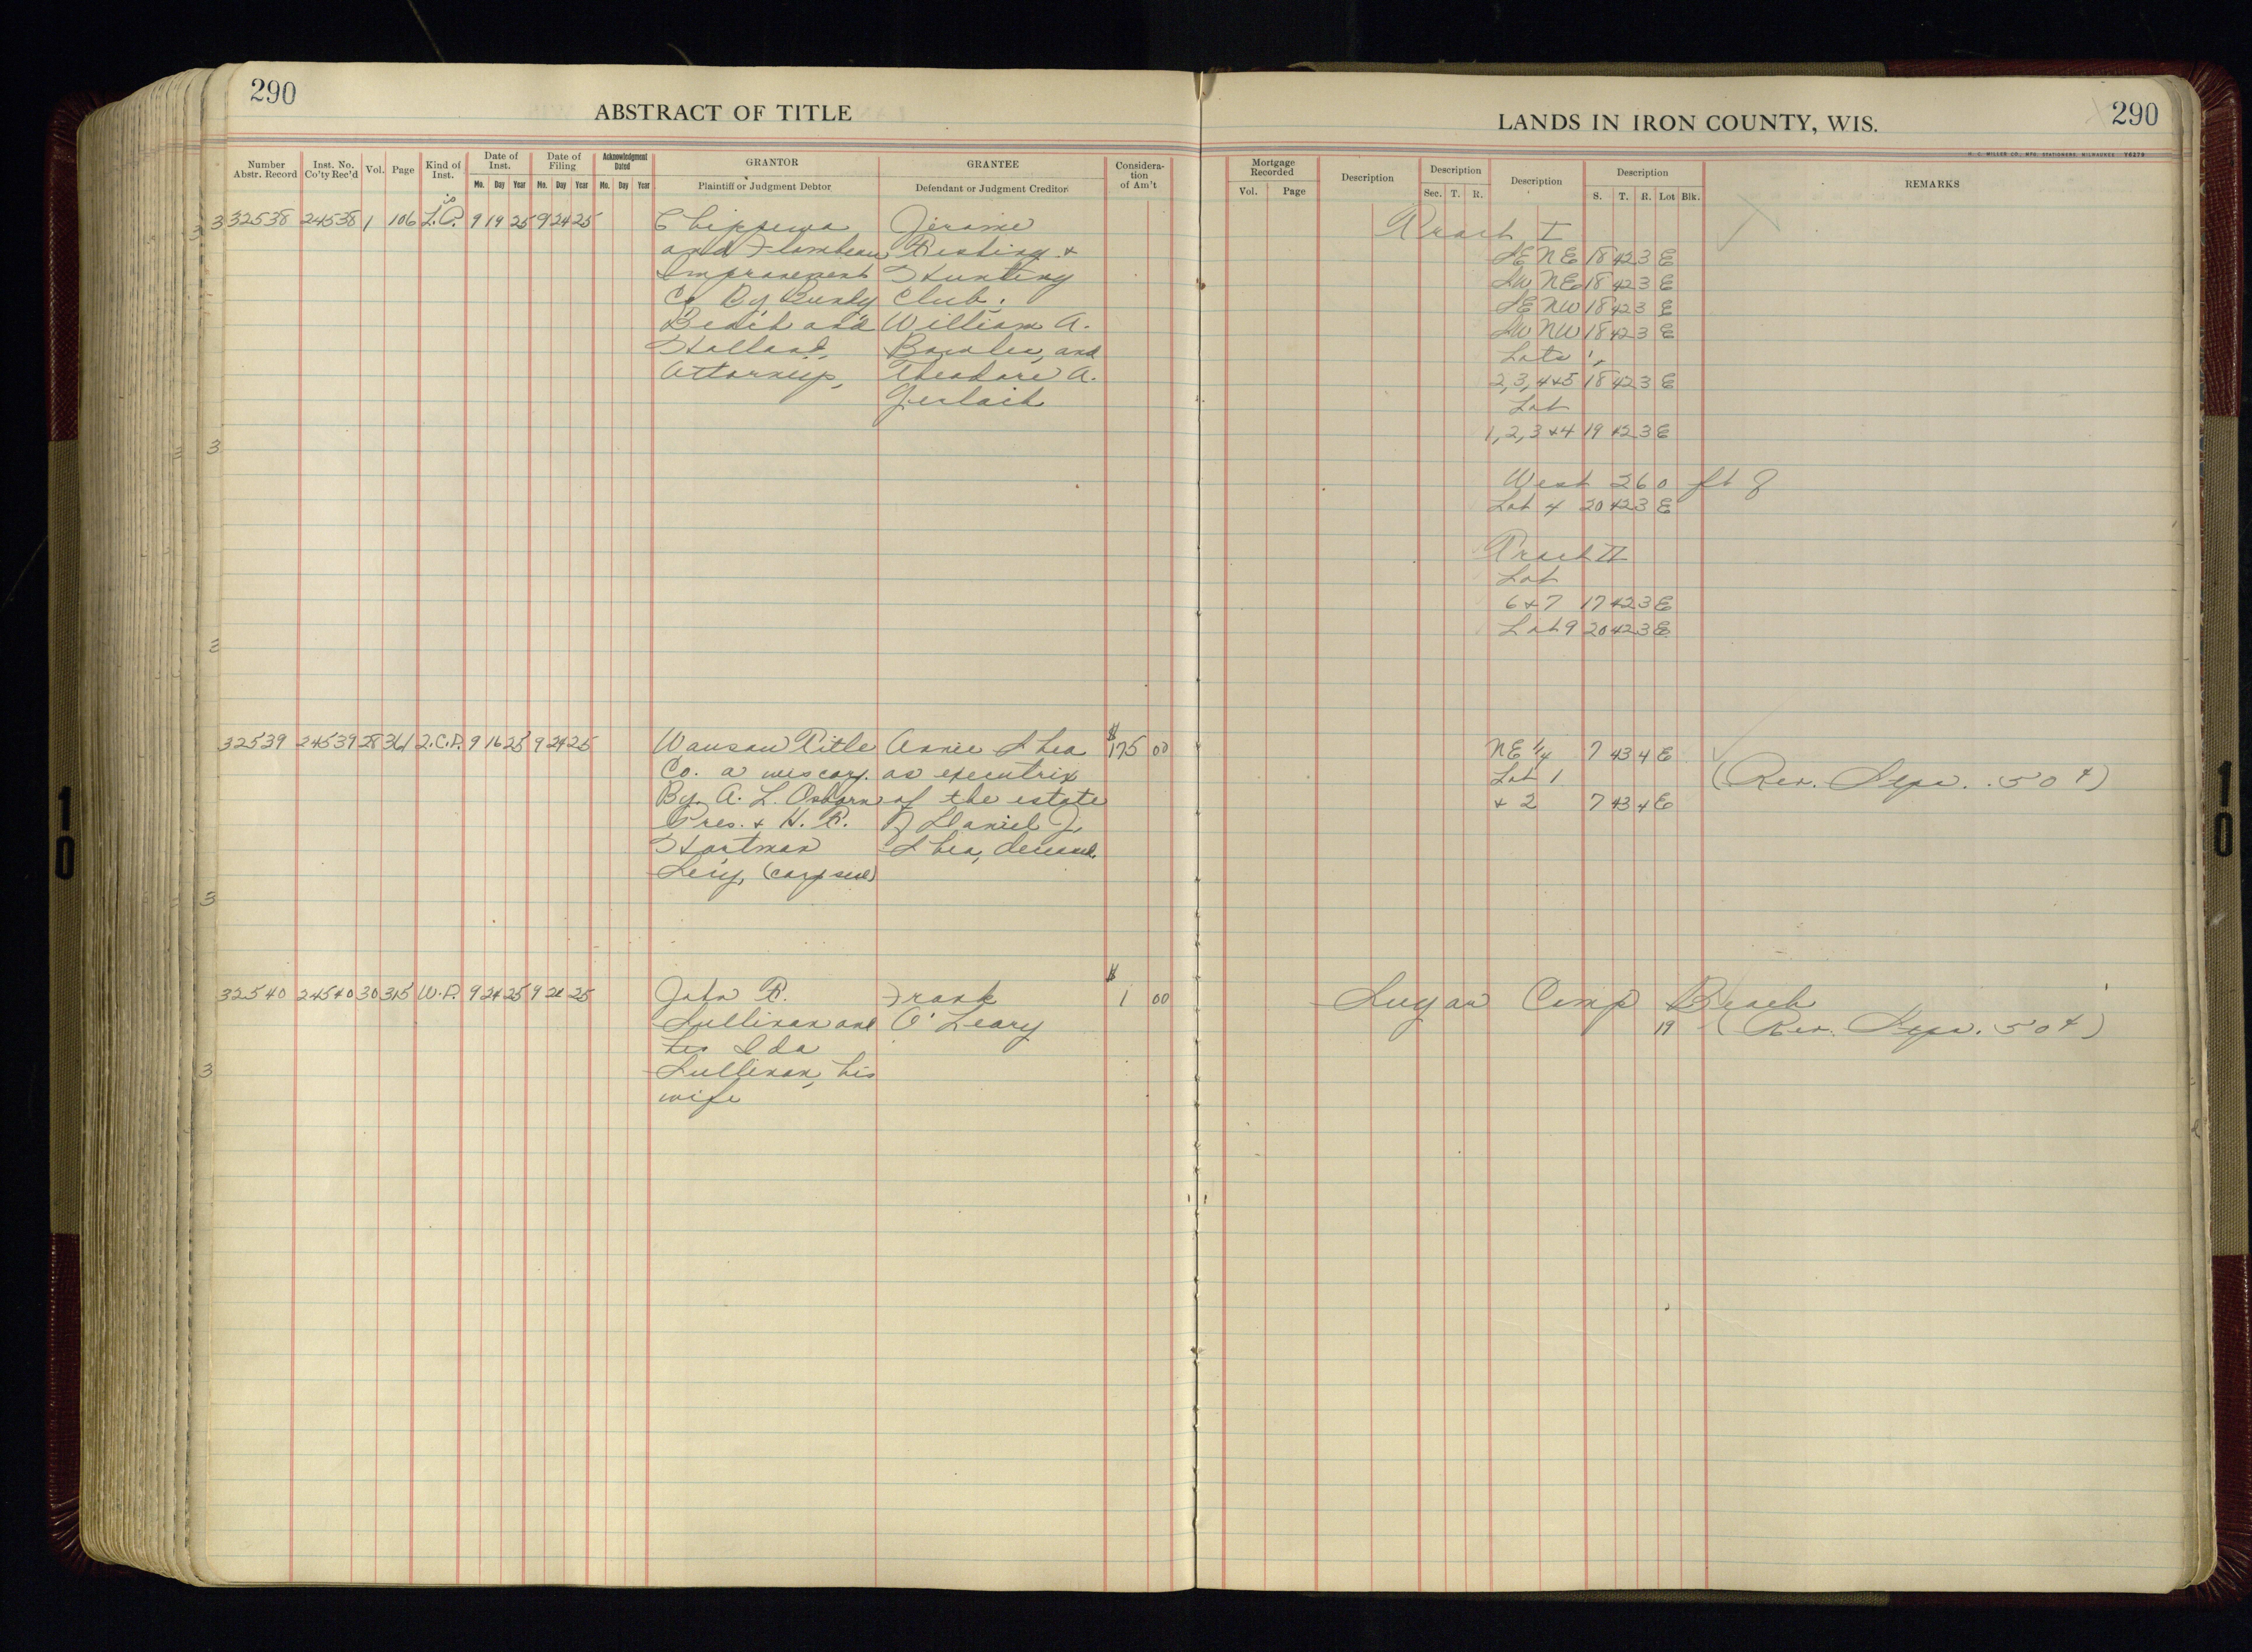 290
ABSTRACT OF TITLE
Number Abstr. Record
Inst. No. Co'ty Rec'd
Vol.
Page
Kind of Inst.
Date of Inst.
Mo. Day Year
Date of Filing
Mo. Day Year
Acknowledgment Dated
Mo. Day Year
GRANTOR
Plaintiff or Judgment Debtor
GRANTEE
Defendant or Judgment Creditor
Considera-
tion
of Am't
32538 24538 1 106 L.C. 9 19 25 9 24 25 Chippewa Jerome
and Flambeau Fishing &
Improvement Hunting
Co. By Bundy Club.
Beach and William A.
Holland, Bowler, and
Attorneys, Theodore A.
Gerlach
32539 24539 28 361 2.C.D. 9 16 25 9 24 25 Wausau Title Annie Shea $175 00
Co. a wis corp. as executrix
By A. L. Osborn of the estate
Pres. & H. R. of Daniel J.
Hartman Shea, deceased.
Secy, (corp seal)
32540 24540 30 315 W.D. 9 24 25 9 24 25 John R. Frank $1 00
Sullivan and O'Leary
Ida
Sullivan, his
wife
290
LANDS IN IRON COUNTY, WIS.
H. C. MILLER CO., MFG. STATIONERS, MILWAUKEE Y6279
Mortgage Recorded
Vol. Page
Description
Description
Sec. T. R.
Description
Description
S. T. R. Lot Blk.
REMARKS
Tract I
SE NE 18 42 3 E
SW NE 18 42 3 E
SE NW 18 42 3 E
SW NW 18 42 3 E
Lots 1,
2, 3, 4 & 5 18 42 3 E
Lot
1, 2, 3 & 4 19 42 3 E
West 260 ft of
Lot 4 20 42 3 E
Tract II
Lot
6 & 7 17 42 3 E
Lot 9 20 42 3 E
NE 1/4 7 43 4 E
Lot 1 (Rev. Stps. .50¢)
& 2 7 43 4 E
Sugar Camp Beach
19 (Rev. Stps. 50¢)